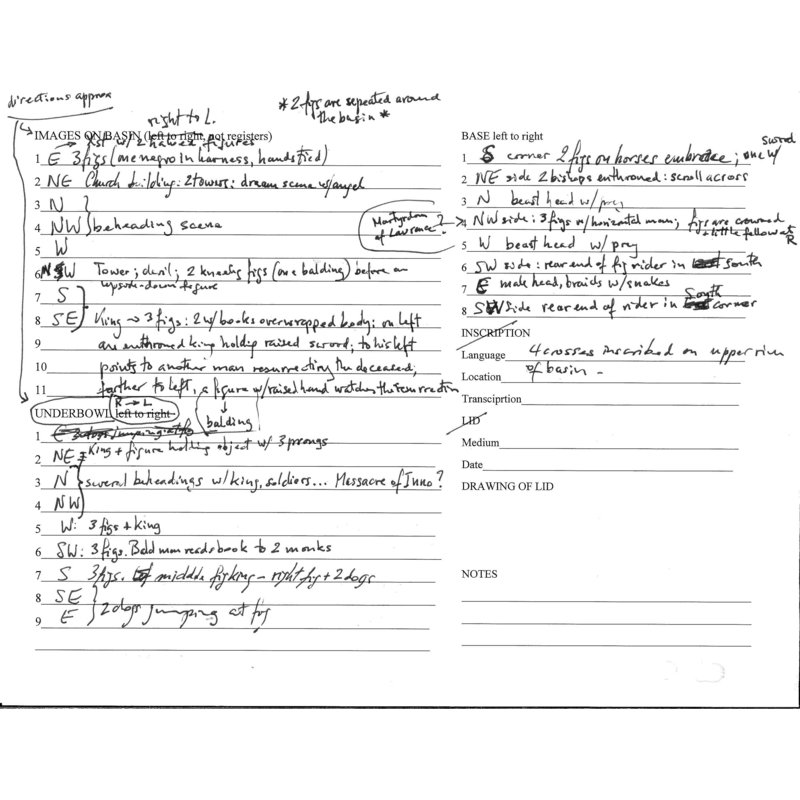 directions approx
right to L.
*2 figs are repeated around
the basin *
IMAGES ON BASIN (left to right, not registers)
→ Xst w/ 2 haloed figures
1 E 3 figs (one negro in harness, hands tied)
2 NE Church building: 2 towers: dream scene w/angel
3 N
4 NW beheading scene
5 W
6 SW Tower; devil; 2 kneeling figs (one balding) before an
upside-down figure
7 S
8 SE King → 3 figs: 2 w/ books over wrapped body; on left
9 an enthroned king holding raised sword; to his left
10 points to another man resurrecting the deceased;
11 farther to left, a figure w/raised hand watches the resurrection
balding
R → L
UNDERBOWL left to right
1 E 3 dogs jumping at fig
2 NE King + figure holding object w/ 3 prongs
3 N several beheadings w/king, soldiers... Massacre of Inno?
4 NW
5 W: 3 figs + king
6 SW: 3 figs. Bald man reads book to 2 monks
7 S 3 figs. middle fig king – right fig + 2 dogs
8 SE
2 dogs jumping at fig
9 E
BASE left to right
sword
1 S corner 2 figs on horses embrace; one w/
2 NE side 2 bishops enthroned: scroll across
3 N beast head w/ prey
Martyrdom
of Lawrence?
4 NW side: 3 figs w/ horizontal man; figs are crowned
+ little fellow at R
5 W beast head w/ prey
6 SW side: rear end of fig rider in South
7 E male head, braids w/ snakes
South
8 SW side rear end of rider in corner
INSCRIPTION
Language 4 crosses inscribed on upper rim
Location of basin –
Transciprtion
LID
Medium
Date
DRAWING OF LID
NOTES